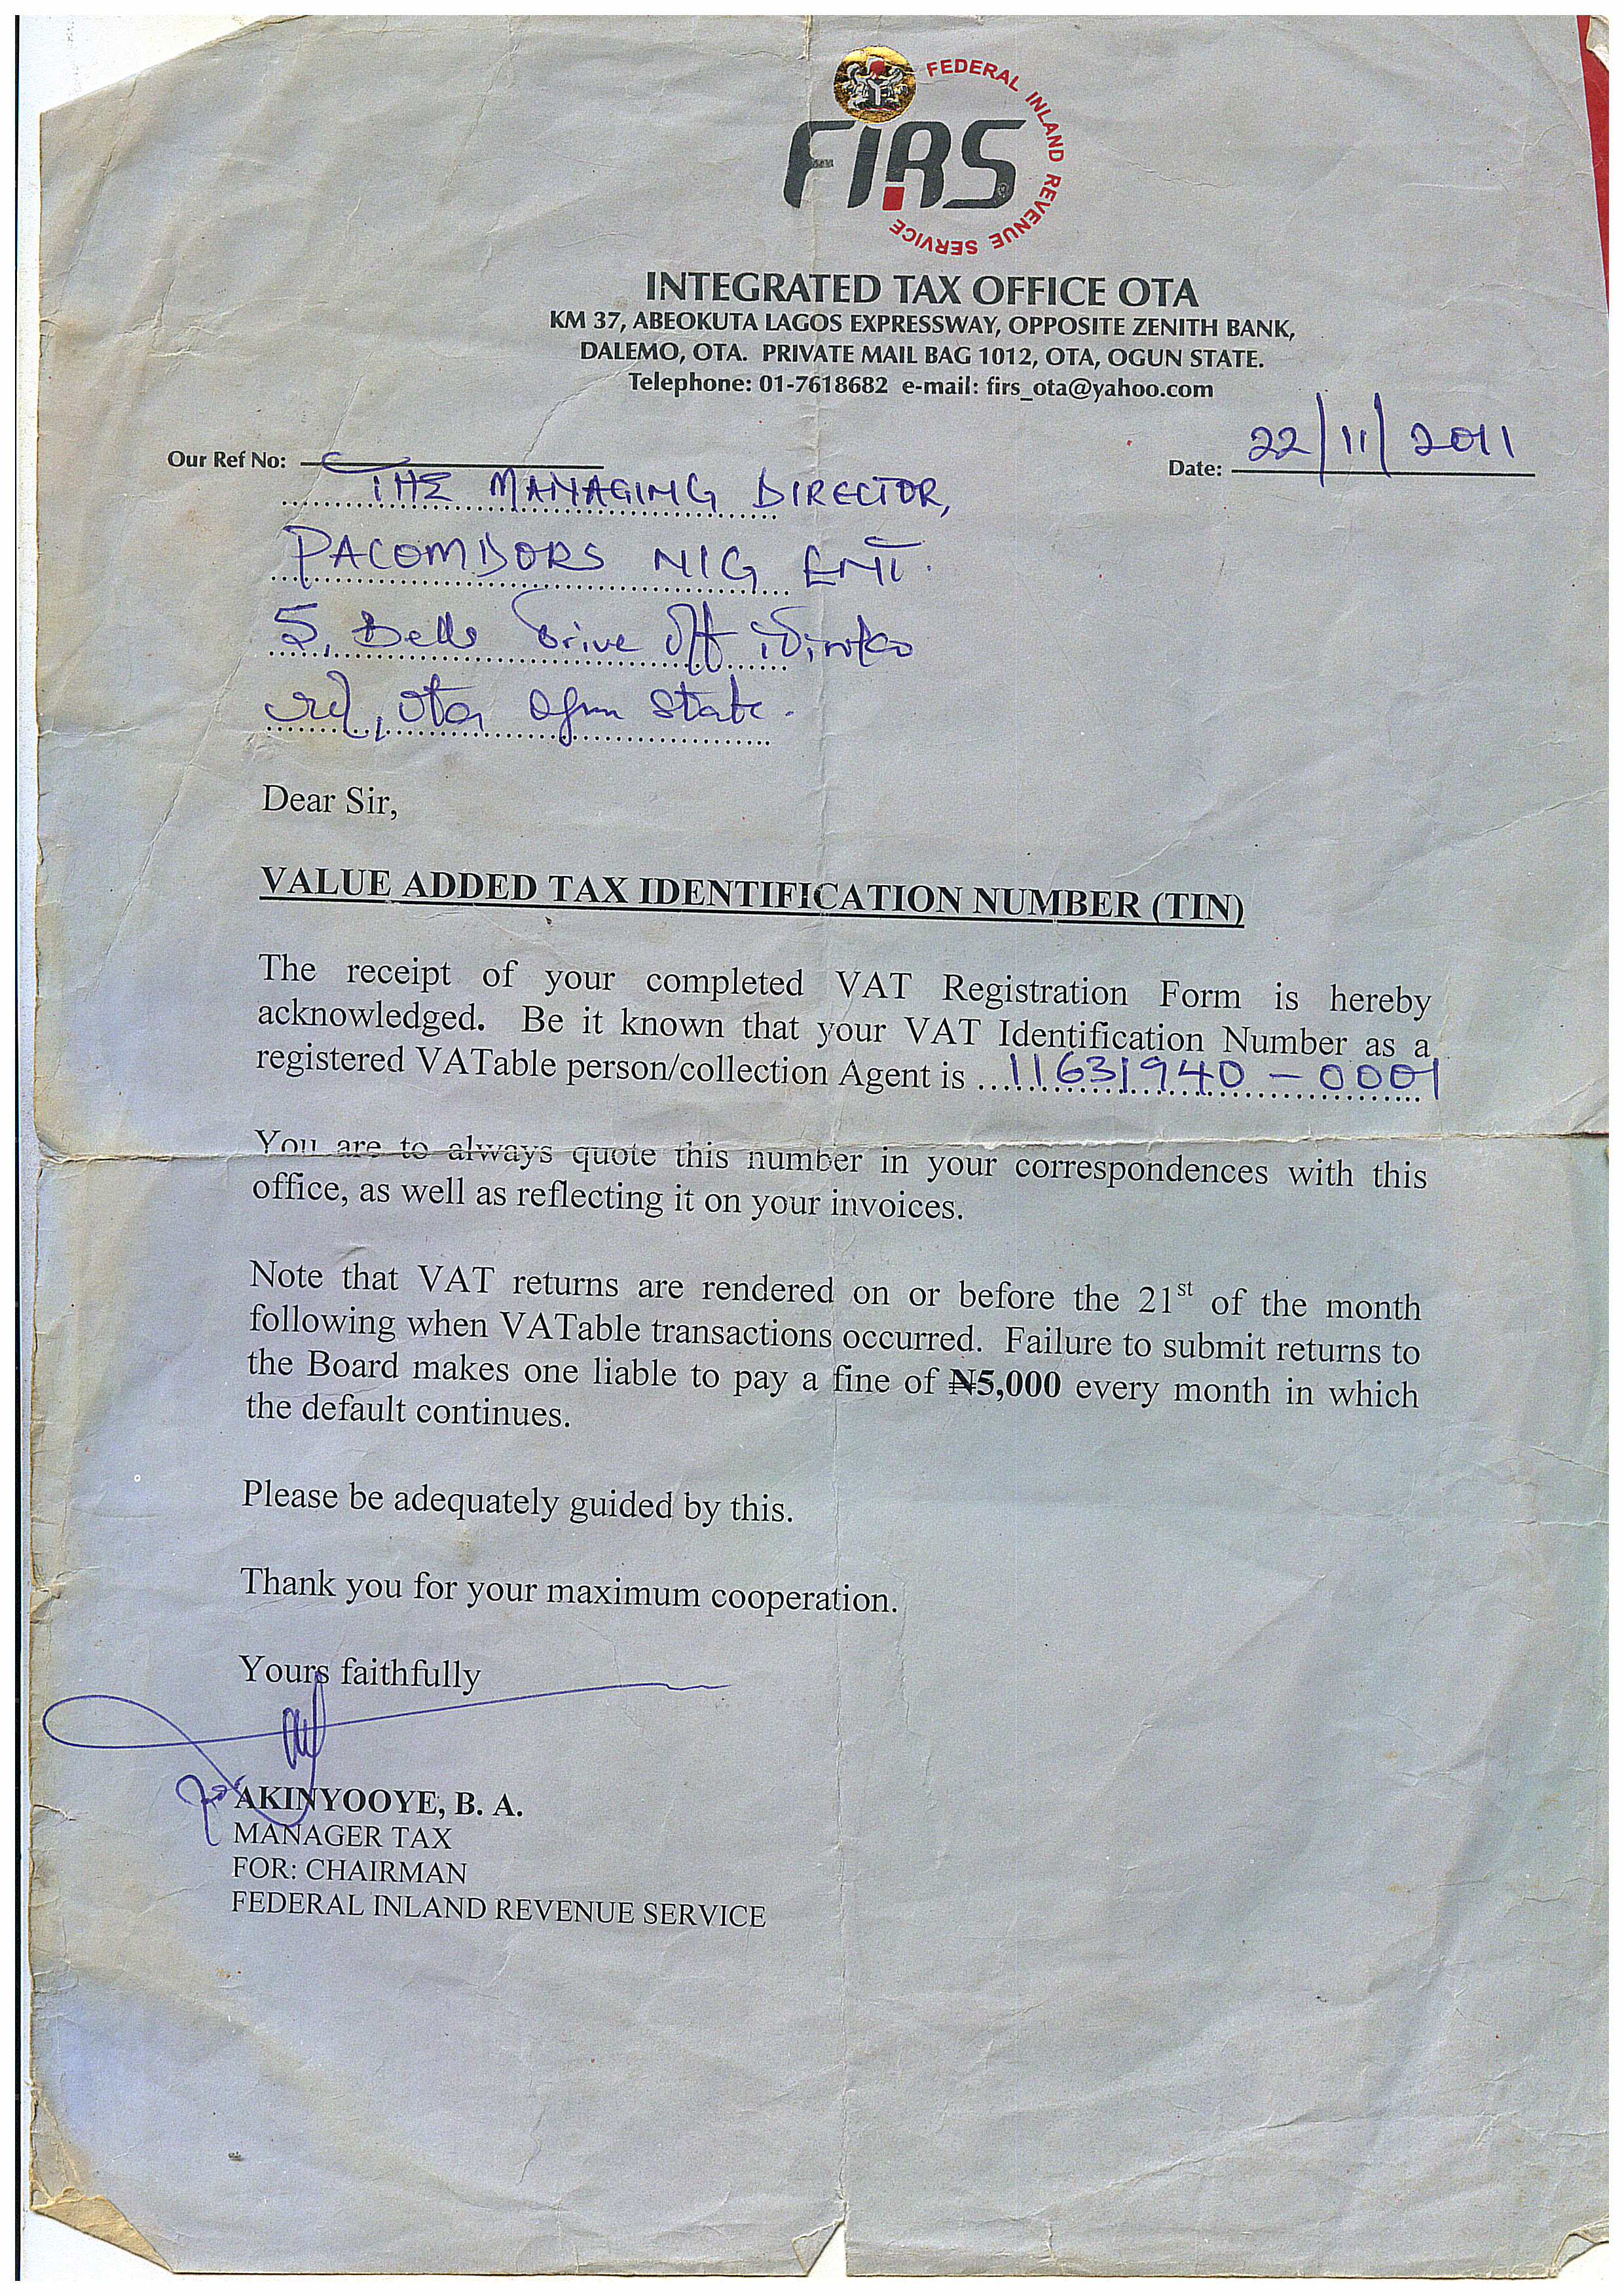 FEDERAL INLAND REVENUE SERVICE
FIRS
INTEGRATED TAX OFFICE OTA
KM 37, ABEOKUTA LAGOS EXPRESSWAY, OPPOSITE ZENITH BANK,
DALEMO, OTA. PRIVATE MAIL BAG 1012, OTA, OGUN STATE.
Telephone: 01-7618682 e-mail: firs_ota@yahoo.com
Our Ref No:
Date: 22/11/2011
THE MANAGING DIRECTOR,
PACOMDORS NIG ENT.
5, Bells Drive Off iDiroko
rd, Ota Ogun State.
Dear Sir,
VALUE ADDED TAX IDENTIFICATION NUMBER (TIN)
The receipt of your completed VAT Registration Form is hereby
acknowledged. Be it known that your VAT Identification Number as a
registered VATable person/collection Agent is ...11631940-0001
You are to always quote this number in your correspondences with this
office, as well as reflecting it on your invoices.
Note that VAT returns are rendered on or before the 21st of the month
following when VATable transactions occurred. Failure to submit returns to
the Board makes one liable to pay a fine of ₦5,000 every month in which
the default continues.
Please be adequately guided by this.
Thank you for your maximum cooperation.
Yours faithfully
AKINYOOYE, B. A.
MANAGER TAX
FOR: CHAIRMAN
FEDERAL INLAND REVENUE SERVICE